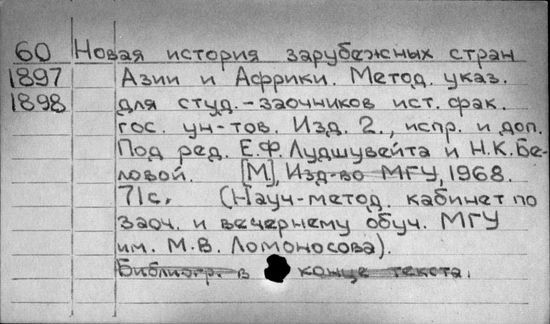 60 Новая история зарубежных стран
1897 Азии и Африки. Метод. указ.
1898 для студ.-заочников ист. фак.
гос. ун-тов. Изд. 2., испр. и доп.
Под ред. Е.Ф. Лудшувейта и Н.К.Бе-
ловой. [М], Изд-во МГУ, 1968.
71с. (Науч-метод. кабинет по
заоч. и вечернему обуч. МГУ
им. М.В. Ломоносова).
Библиогр. в конце текста.